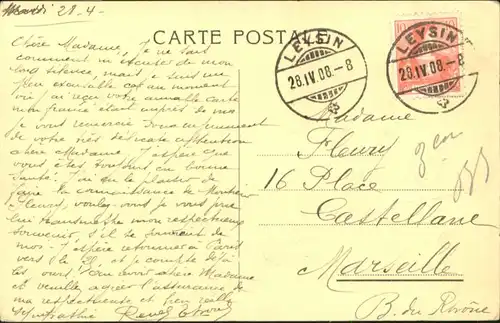 Mardi 28-4-
CARTE POSTALE
Chère Madame, je ne sais
comment m'excuser de mon
long silence, mais je suis un
peu excusable car au moment
où j'ai reçu votre aimable carte
mon fiancé était auprès de moi
je vous remercie
de votre très délicate attention
chère Madame. J'espère que
vous êtes en bonne
santé. J'ai eu le plaisir de
faire la connaissance de Monsieur
Fleury, voulez-vous je vous prie
lui transmettre mon respectueux
souvenir, s'il se souvient de
moi. J'espère retourner à Paris
vers le et je compte déjà
les jours. chère Madame
et veuillez agréer l'assurance de
ma respectueuse et bien réelle
sympathie
LEYSIN
28.IV.08.-8
LEYSIN
28.IV.08.-8
Madame
Fleury
16 Place
Castellane
Marseille
B. du Rhône